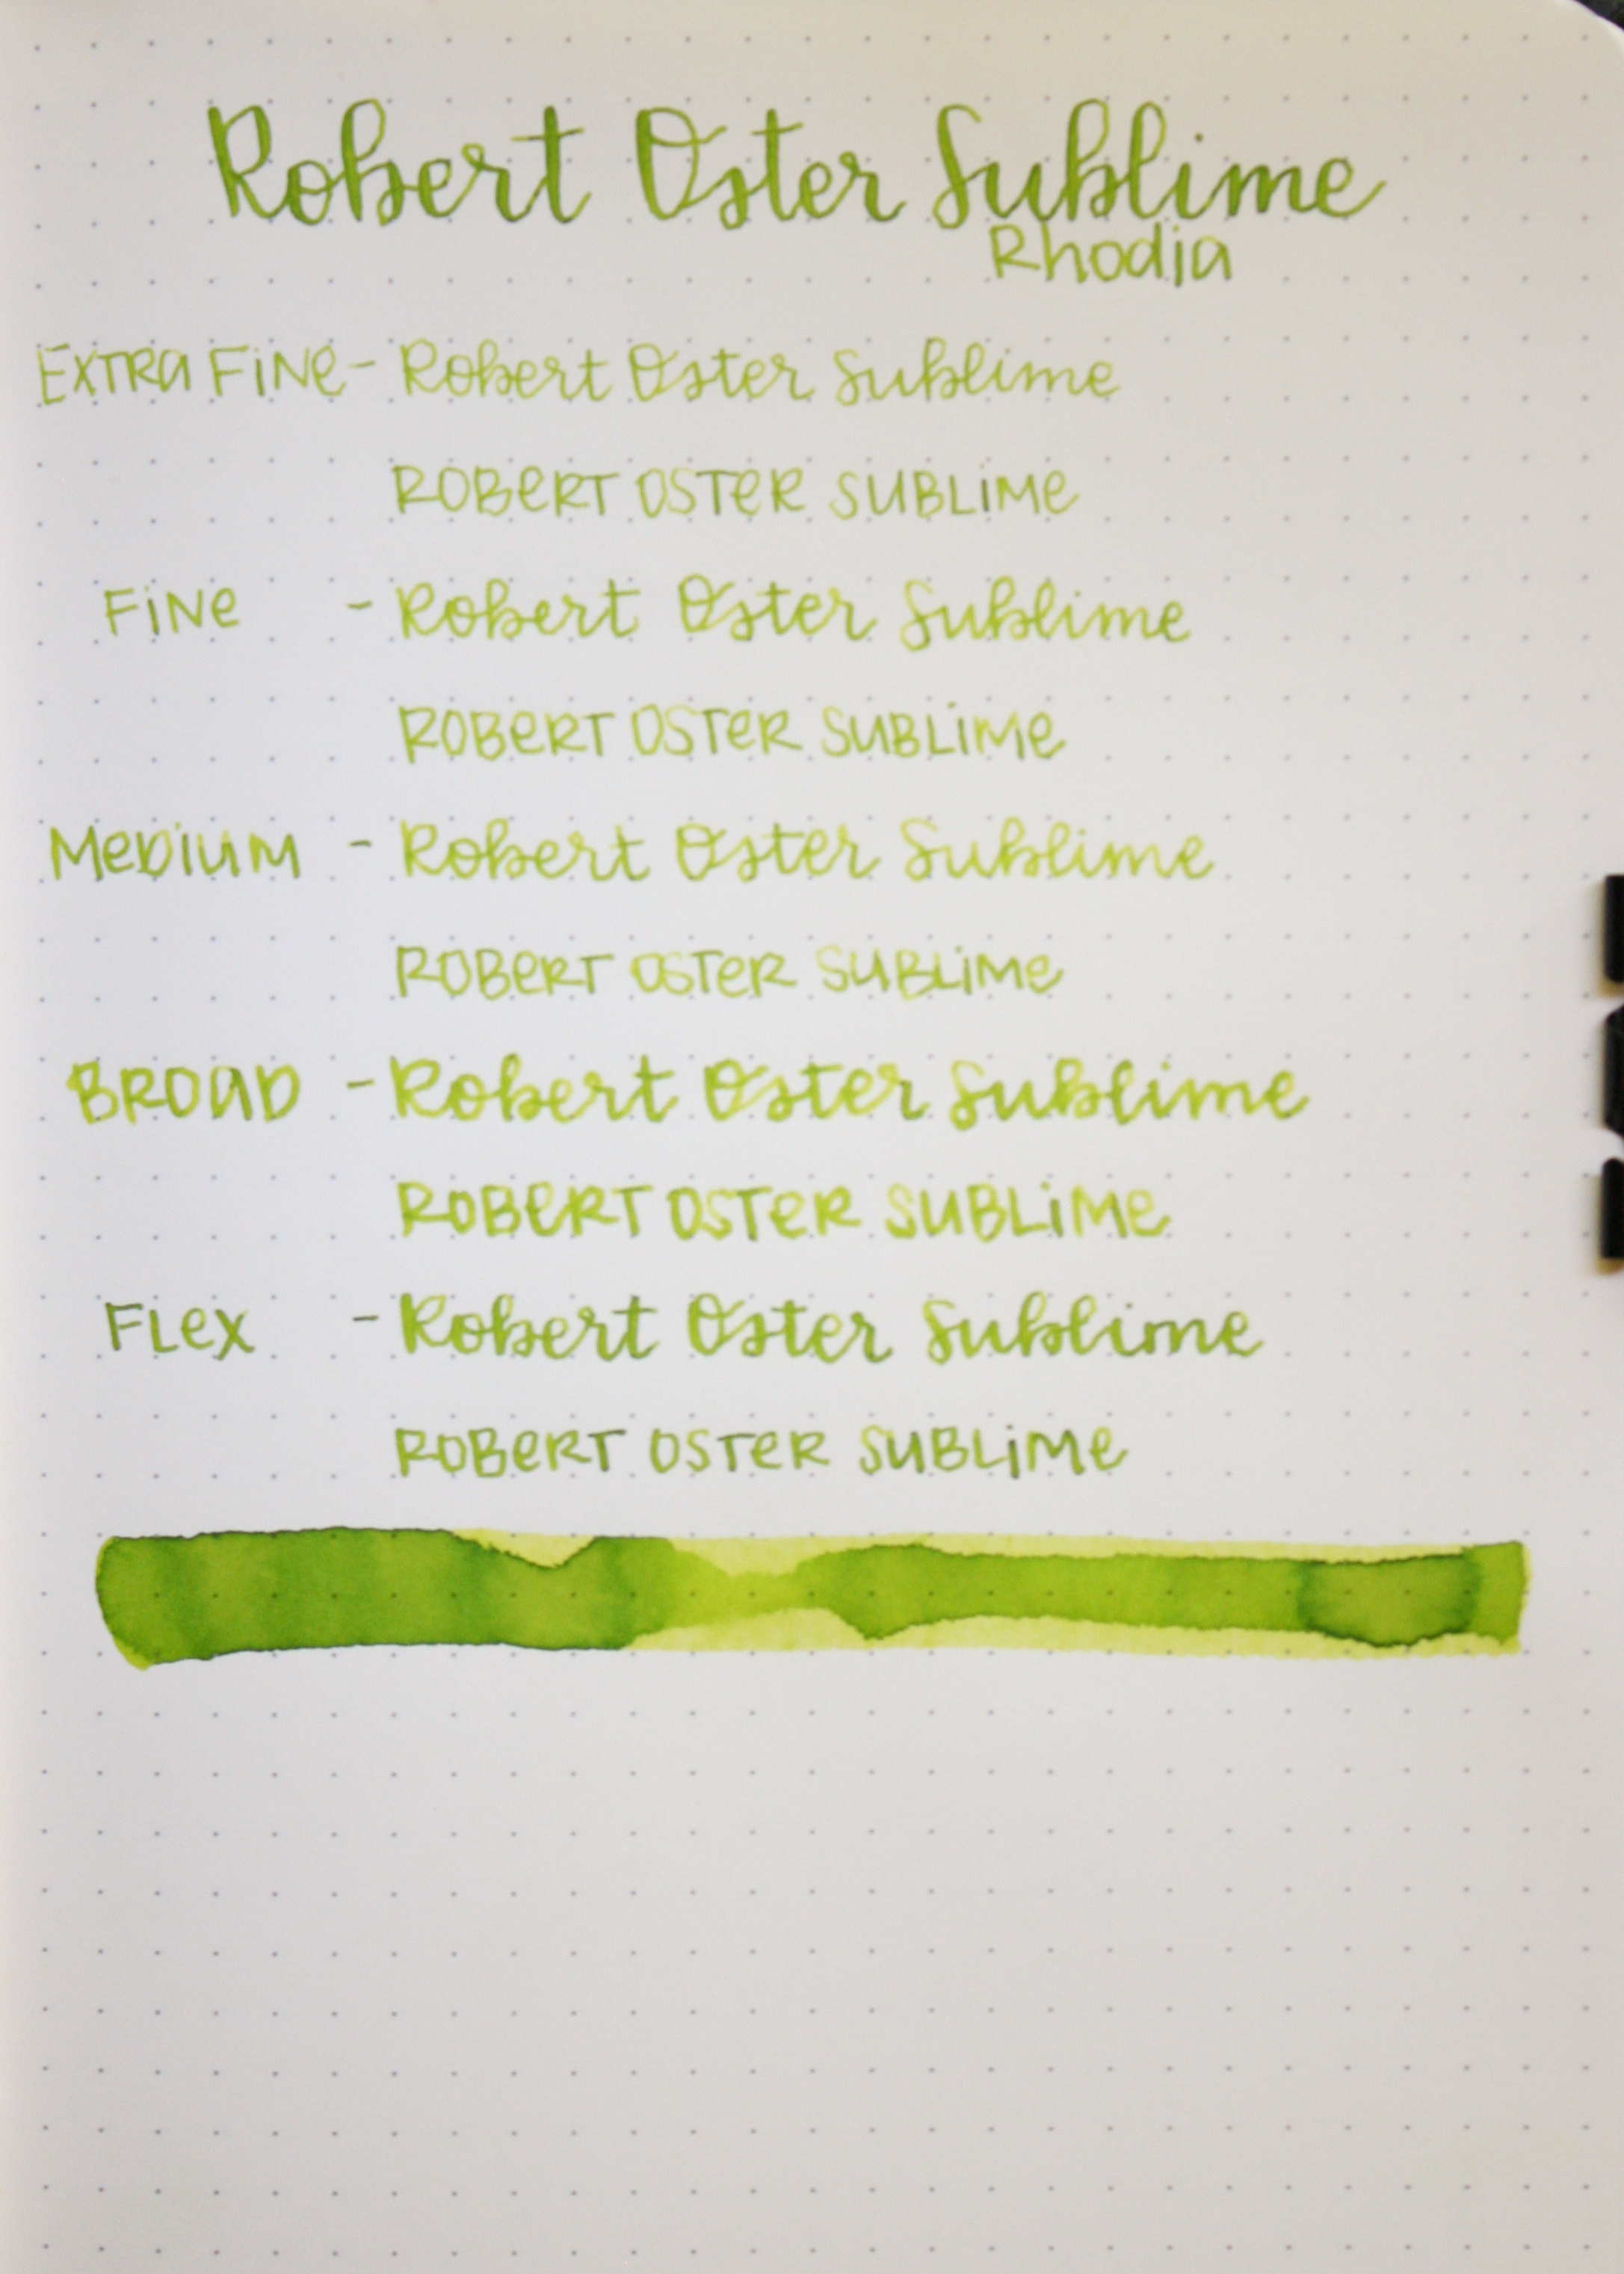 Robert Oster Sublime
Rhodia
EXTRA FiNe - Robert Oster Sublime
ROBeRT OSTeR SUBLiMe
FiNe - Robert Oster Sublime
ROBeRT OSTeR SUBLiMe
MeDiuM - Robert Oster Sublime
ROBeRT OSTeR SUBLiMe
BROAD - Robert Oster Sublime
ROBeRT OSTeR SUBLiMe
FLex - Robert Oster Sublime
ROBeRT OSTeR SUBLiMe